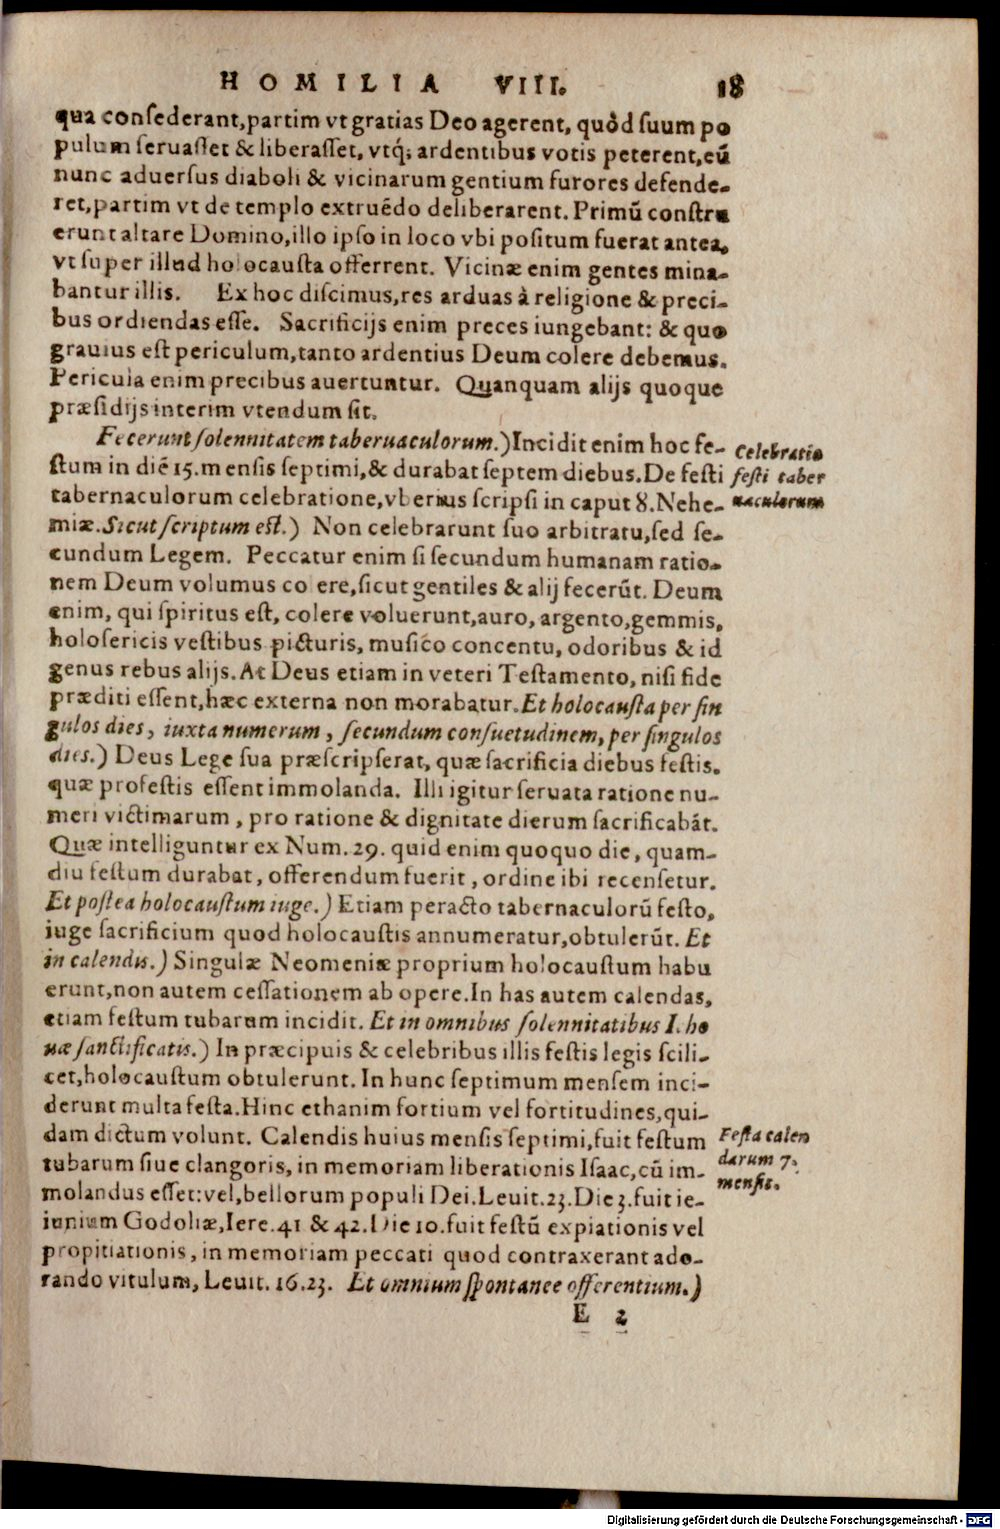 HOMILIA VIII. 18
qua consederant,partim vt gratias Deo agerent, quòd suum po
pulum seruasset & liberasset, vtq́; ardentibus votis peterent,eū
nunc aduersus diaboli & vicinarum gentium furores defende-
ret,partim vt de templo extruēdo deliberarent. Primū constru
erunt altare Domino,illo ipso in loco vbi positum fuerat antea,
vt super illud holocausta offerrent. Vicinæ enim gentes mina-
bantur illis. Ex hoc discimus,res arduas à religione & preci-
bus ordiendas esse. Sacrificijs enim preces iungebant: & quo
grauius est periculum,tanto ardentius Deum colere debemus.
Pericula enim precibus auertuntur. Quanquam alijs quoque
præsidijs interim vtendum sit.
Fecerunt solennitatem tabernaculorum.) Incidit enim hoc fe-
stum in diē 15.mensis septimi,& durabat septem diebus.De festi
tabernaculorum celebratione,vberius scripsi in caput 8.Nehe-
miæ.Sicut scriptum est.) Non celebrarunt suo arbitratu,sed se-
cundum Legem. Peccatur enim si secundum humanam ratio-
nem Deum volumus co ere,sicut gentiles & alij fecerūt. Deum
enim, qui spiritus est, colere voluerunt,auro, argento,gemmis,
holosericis vestibus picturis, musico concentu, odoribus & id
genus rebus alijs. At Deus etiam in veteri Testamento, nisi fide
præditi essent,hæc externa non morabatur.Et holocausta per sin
gulos dies, iuxta numerum, secundum consuetudinem, per singulos
dies.) Deus Lege sua præscripserat, quæ sacrificia diebus festis.
quæ profestis essent immolanda. Illi igitur seruata ratione nu-
meri victimarum, pro ratione & dignitate dierum sacrificabāt.
Quæ intelliguntur ex Num. 29. quid enim quoquo die, quam-
diu festum durabat, offerendum fuerit, ordine ibi recensetur.
Et postea holocaustum iuge.) Etiam peracto tabernaculorū festo,
iuge sacrificium quod holocaustis annumeratur,obtulerūt. Et
in calendis.) Singulæ Neomeniæ proprium holocaustum habu
erunt,non autem cessationem ab opere.In has autem calendas,
etiam festum tubarum incidit. Et in omnibus solennitatibus Iého
uæ sanctificatis.) In præcipuis & celebribus illis festis legis scili-
cet,holocaustum obtulerunt. In hunc septimum mensem inci-
derunt multa festa.Hinc ethanim fortium vel fortitudines,qui-
dam dictum volunt. Calendis huius mensis septimi,fuit festum
tubarum siue clangoris, in memoriam liberationis Isaac,cū im-
molandus esset: vel,bellorum populi Dei.Leuit.23.Die 3.fuit ie-
iunium Godoliæ,Iere.41 & 42.Die 10.fuit festū expiationis vel
propitiationis, in memoriam peccati quod contraxerant ado-
rando vitulum, Leuit. 16.23. Et omnium spontanee offerentium.)
E 2
Celebratio
festi taber
naculorum
Festa calen
darum 7.
mensis.
Digitalisierung gefördert durch die Deutsche Forschungsgemeinschaft - DFG